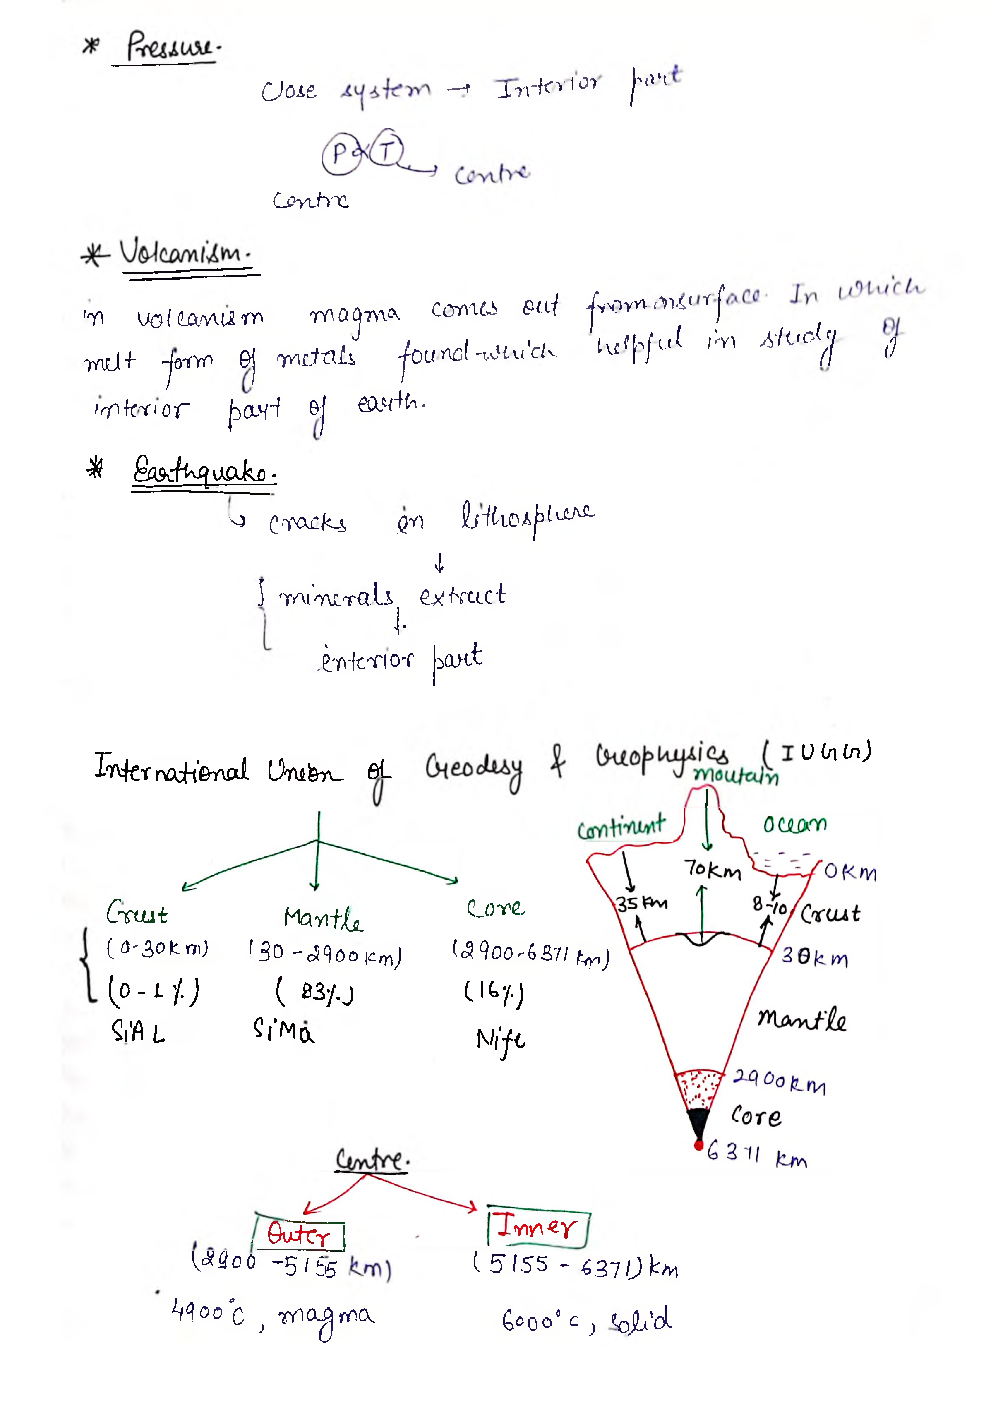 * Pressure.
Close system → Interior part
P α T → centre
centre
* Volcanism.
in volcanism magma comes out from onsurface. In which
melt form of metals found-which helpful in study of
interior part of earth.
* Earthquake.
↳ cracks in lithosphere
↓
{ minerals extract
↓
interior part
International Union of Geodesy & Geophysics (IUGG)
moutain
continent
ocean
70km
0km
35 km
8-10
Crust
30km
Mantle
2900km
Core
6371 km
Crust Mantle Core
(0-30km) (30-2900km) (2900-6371 km)
(0-1%) (83%) (16%)
SiAL SiMa Nife
Centre.
Outer Inner
(2900-5155 km) (5155-6371) km
4900°C, magma 6000°c, solid